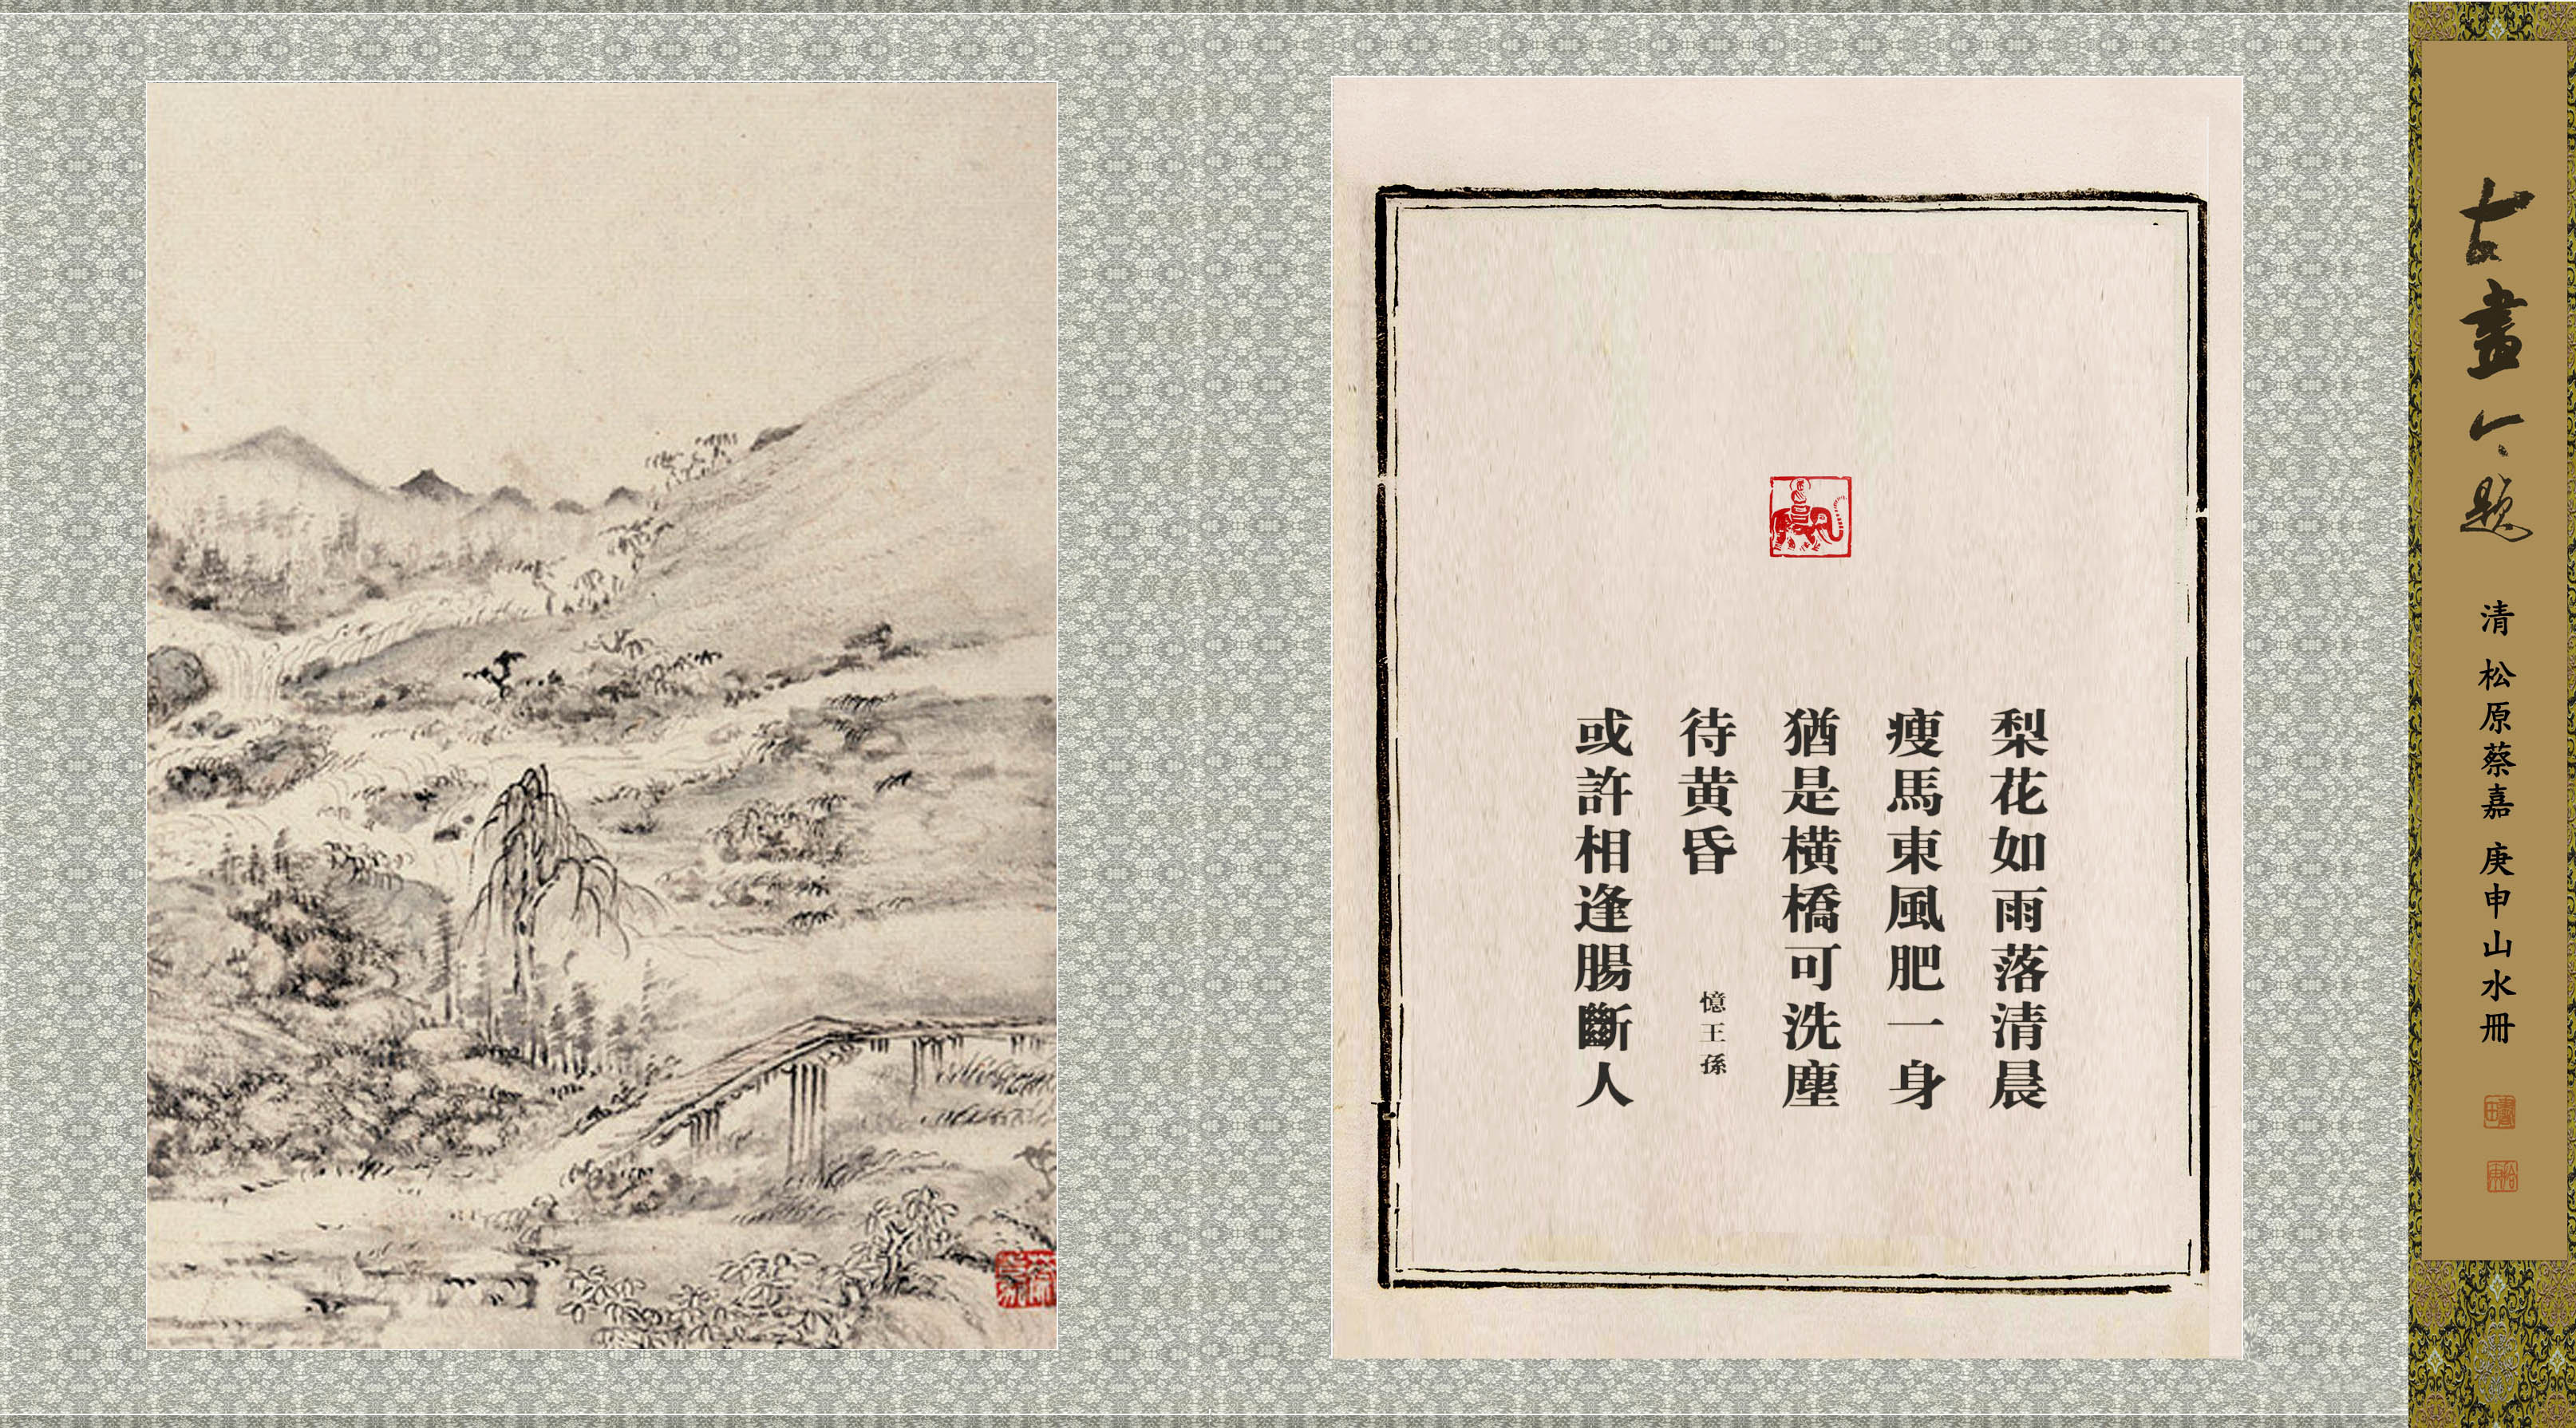 古畫今題
清 松原蔡嘉 庚申山水冊
梨花如雨落清晨
瘦馬東風肥一身
猶是橫橋可洗塵
待黄昏
憶王孫
或許相逢腸斷人